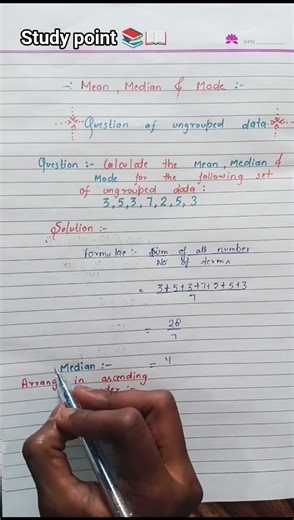 Study point 📚📖
DATE
-: Mean, Median & Mode :-
Question of ungrouped data
Question :- Calculate the Mean, Median &
Mode for the following set
of ungrouped data :
3, 5, 3, 7, 2, 5, 3
Solution -
formulae :- Sum of all number
No of terms
= 3+5+3+7+2+5+3
7
= 28
7
= 4
Median :-
Arrange in ascending
order :-